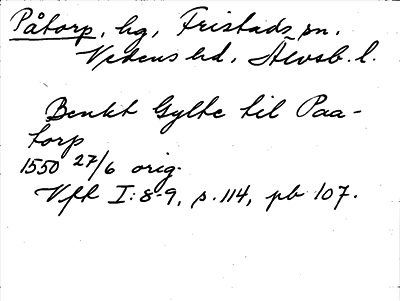 Påtorp, hg, Fristads sn.
Vedens hd, Älvsb. l.
Benkt Gylte til Paa-
torp
1550 27/6 orig.
Vfh I:8-9, s. 114, pb 107.